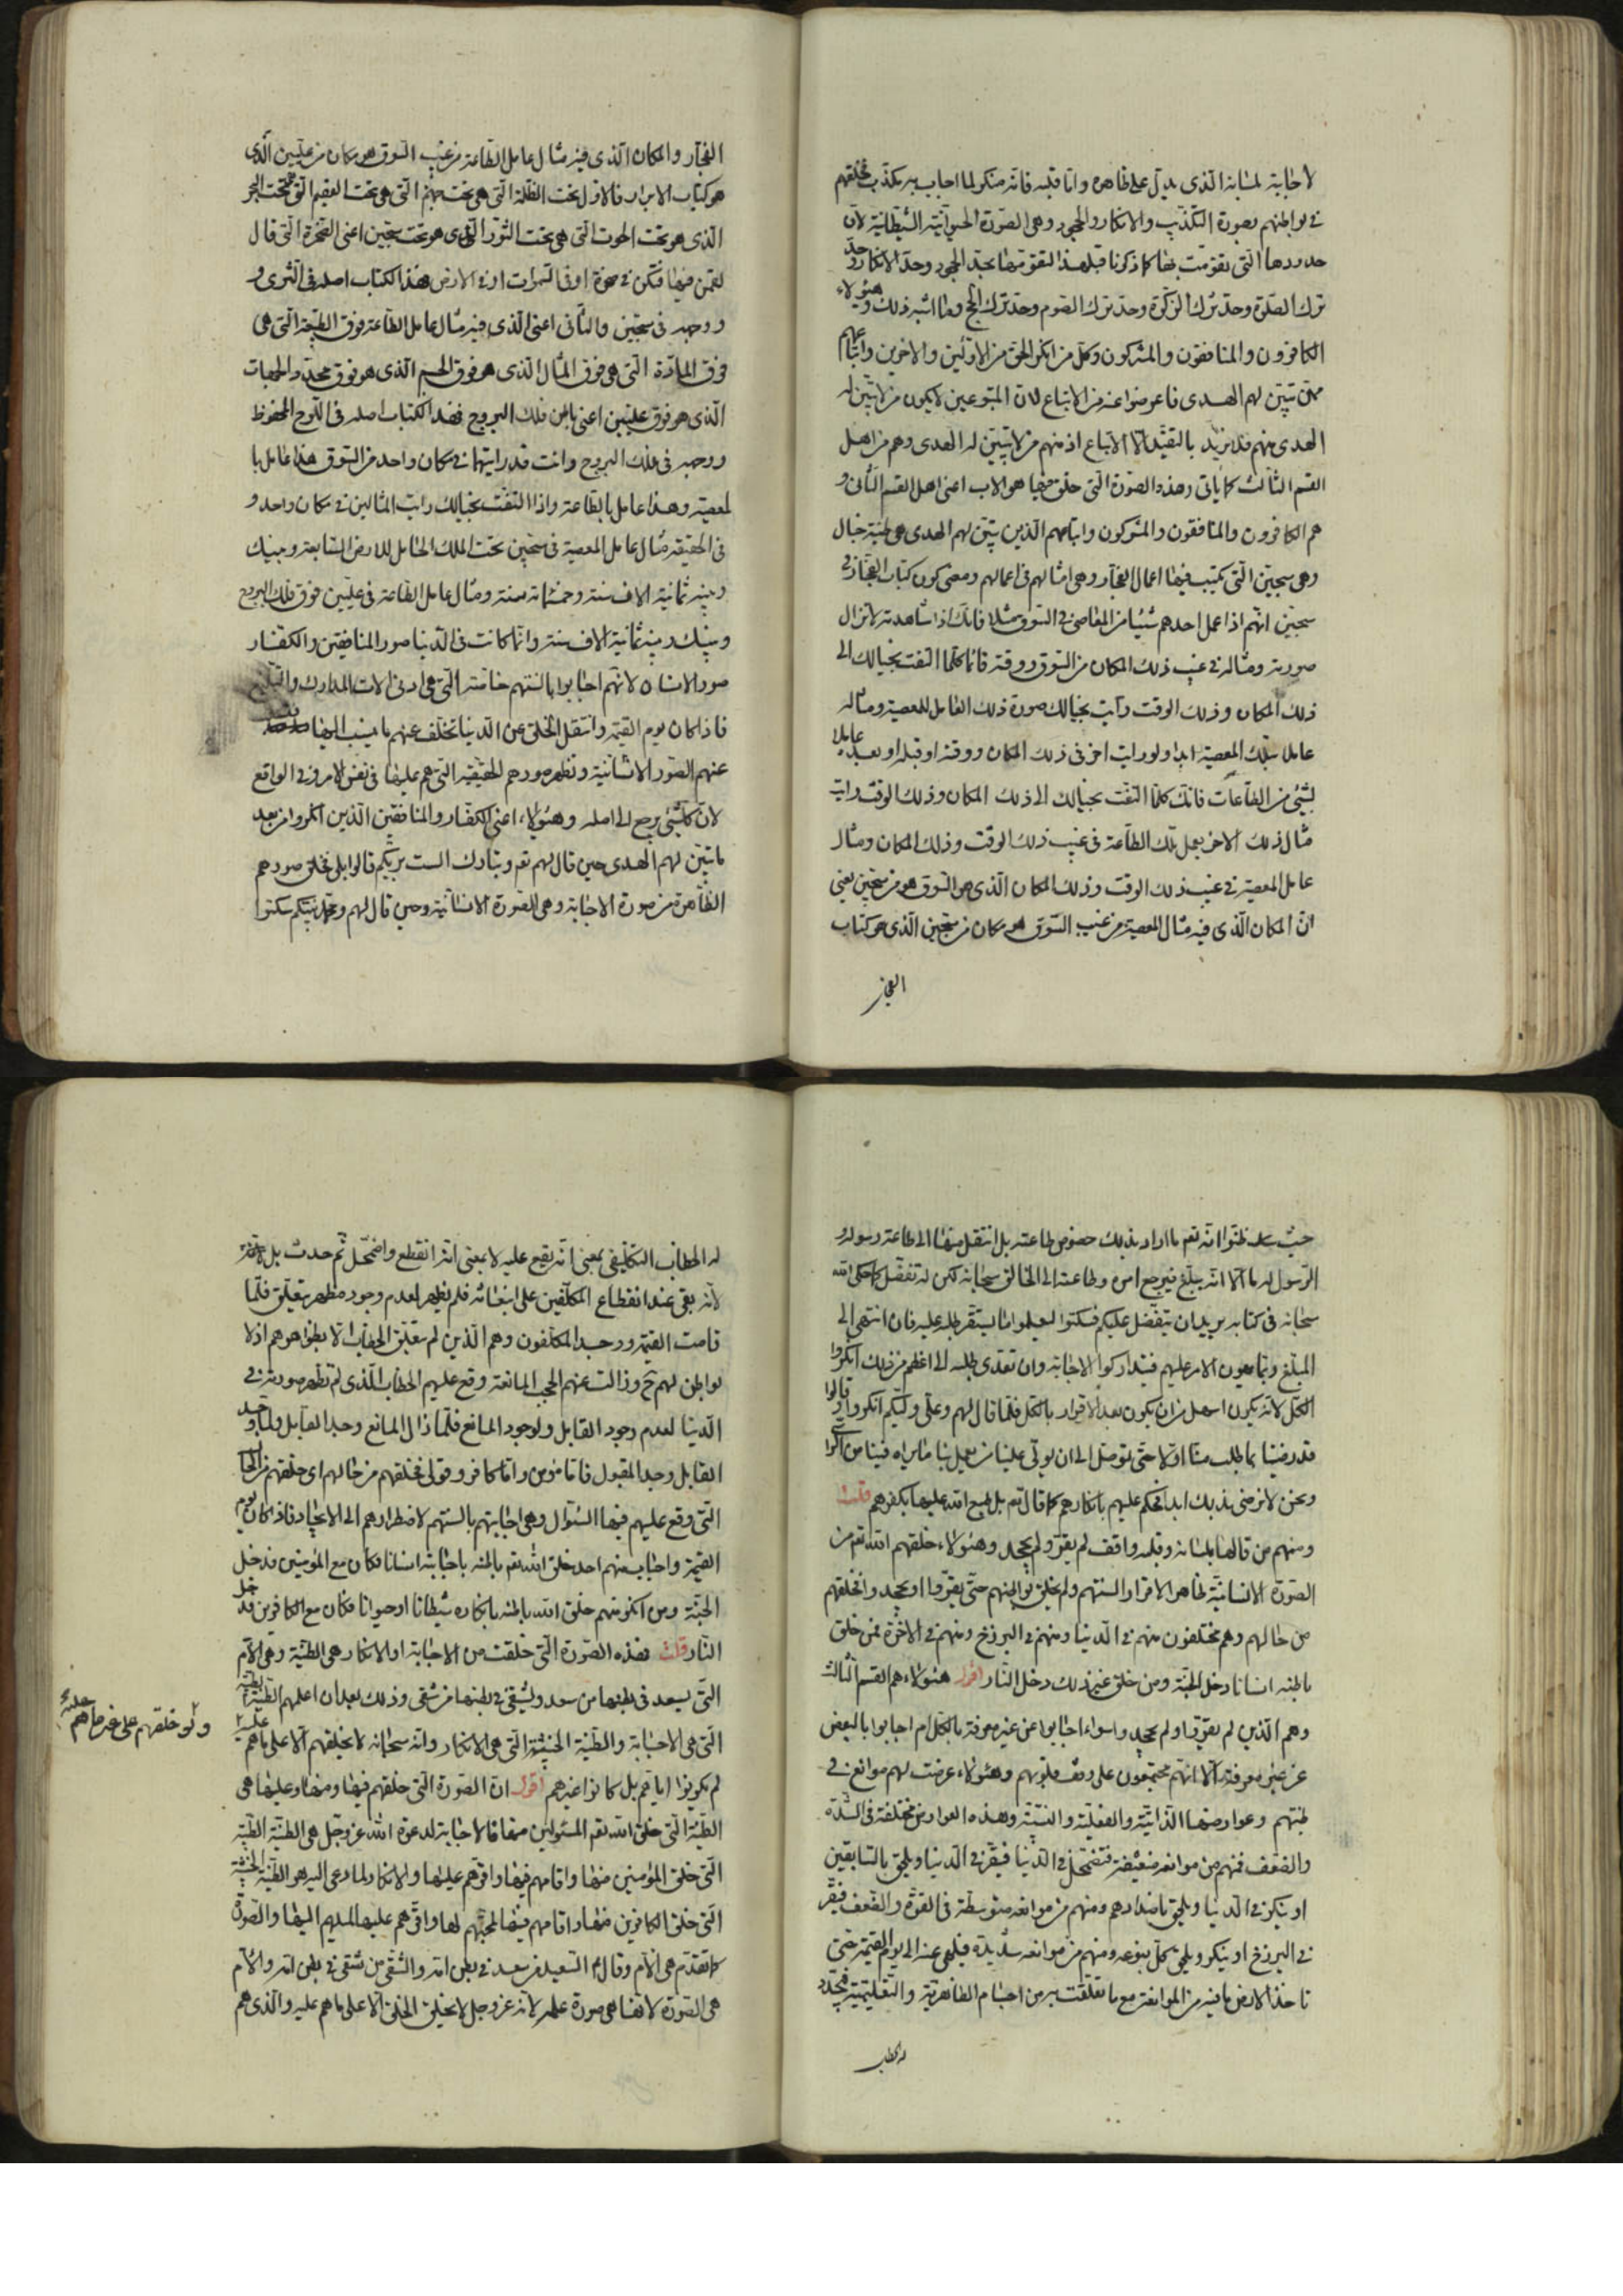 لاجابة لسانه الذى يدل على ظاهره واما قلبه فانه منكر لما اجاب به يكذب فخلقهم
فى بواطنهم بصورة التكذيب والانكار والجحود وهى الصورة الحيوانية الشيطانية لان
حدودها التى تقومت بها كما ذكرنا قبل هذا التقومها بحد الجحود وحد الانكار وحد
ترك الصلوة وحد ترك الزكوة وحد ترك الصوم وحد ترك الحج وما اشبه ذلك وهؤلاء
الكافرون والمنافقون والمشركون وكل من انكر الحق من الاولين والاخرين واتباعهم
ممن تبين لهم الهدى فاعرضوا عنه من الاتباع لان المتبوعين لا يكون من لا تبين له
الهدى منهم فلا نريد بالتقييد الا الاتباع اذ منهم من لا تبين له الهدى وهم من اهل
القسم الثالث كما ياتى وهذه الصورة التى خلق فيها هو الاب اعنى اهل القسم الثانى و
هم الكافرون والمنافقون والمشركون واتباعهم الذين تبين لهم الهدى هى طينة خبال
وهى سجين التى يكتب فيها اعمال الفجار وهى امثالهم فى اعمالهم ومعنى كون كتاب الفجار فى
سجين انهم اذا عمل احدهم شيئا من المعاصى فى السوق مثلا فانك اذا شاهدته لا تزال
صورته ومثاله فى غيب ذلك المكان من السوق ووقته فانما كلما التفت بخيالك الى
ذلك المكان وذلك الوقت رايت بخيالك صورة ذلك العامل للمعصية ومثاله
عامل بتلك المعصية ابدا ولو رايت اخر فى ذلك المكان ووقته او قبله او بعده عاملا
بشئ من الطاعات فانك كلما التفت بخيالك الى ذلك المكان وذلك الوقت رايت
مثال ذلك الاخر يعمل تلك الطاعة فى غيب ذلك الوقت وذلك المكان ومثال
عامل المعصية فى غيب ذلك الوقت وذلك المكان الذى هو السوق هو من سجين يعنى
ان المكان الذى فيه مثال المعصية من غيب السوق هو مكان من سجين الذى هو كتاب
الفجار
الفجار والمكان الذى فيه مثال عامل الطاعة من غيب السوق هو مكان من عليين الذى
هو كتاب الابرار فالاول تحت الظلمة التى هى تحت جهنم التى هى تحت العقيم التى هى تحت البحر
الذى هو تحت الحوت التى هى تحت الثور الذى هو تحت سجين اعنى الصخرة التى قال
لقمن فيها فتكن فى صخرة او فى السموات او فى الارض فهذا الكتاب اصله فى الثرى و
ووجهه فى سجين والثانى اعنى الذى فيه مثال عامل الطاعة فوق الطبيعة التى هى
فوق المادة التى هى فوق المثال الذى هو فوق الجسم الذى هو فوق محدد الجهات
الذى هو فوق عليين اعنى باطن فلك البروج فهذا الكتاب اصله فى اللوح المحفوظ
ووجهه فى فلك البروج وانت قد رايتهما فى مكان واحد من السوق هذا عامل با
لمعصية وهذا عامل بالطاعة واذا التفت بخيالك رايت المثالين فى مكان واحد و
فى الحقيقة مثال عامل المعصية فى سجين تحت الملك الحامل للارض السابعة وبينك
وبينه ثمانية الاف سنة وخمسمائة سنة ومثال عامل الطاعة فى عليين فوق فلك البروج
وبينك وبينه ثمانية الاف سنة وانما كانت فى الدنيا صور المنافقين والكفار
صور الانسان لانهم اجابوا بالسنتهم خاصة التى هى ادنى الات المدارك والتبليغ
فاذا كان يوم القيمة وانتقل الخلق عن الدنيا تخلف عنهم ما ينسب اليها
عنهم الصور الانسانية وتظهر صورهم الحقيقية التى هم عليها فى نفس الامر وفى الواقع
لان كل شئ يرجع الى اصله وهؤلاء اعنى الكفار والمنافقين الذين انكروا من بعد
ما تبين لهم الهدى حين قال لهم تعم وتبارك الست بربكم قالوا بلى فخلق صورهم
الظاهرة من صورة الاجابة وهى الصورة الانسانية وحين قال لهم ومحمد نبيكم سكتوا
حيث ظنوا انه تعم ما اراد بذلك خصوص طاعته بل انتقل منها الى طاعة رسوله و
الرسول له ما الا انه يبلغ فيرجع امره وطاعته الى الخالق سبحانه لكن له تفضل كما حكى الله
سبحانه فى كتابه يريد ان يتفضل عليكم فسكتوا ليعلموا ما يستقر طلبه عليه فان انتهى الى
المبلغ وبما يهون الامر عليهم فيتداركوا الاجابة وان تعدى طلبه الى اعظم من ذلك انكروا
الكل لانه يكون اسهل من ان يكون بعد الاقرار بالكل فلما قال لهم وعلى وليكم انكروا وقالوا
قد رضينا بما طلب منا اولا حتى توصل الى ان يولى علينا من يعمل بنا ما يراه فينا من
ونحن لا نرضى بذلك ابدا فحكم عليهم بانكارهم كما قال تعم بل طبع الله عليها بكفرهم قلت
ومنهم من قالها بلسانه وقلبه واقف لم يقر ولم يجحد وهؤلاء خلقهم الله تعم من
الصورة الانسانية ظاهر الاقرار السنتهم ولم يخلق بواطنهم حتى يقروا او يجحدوا فخلقهم
من حالهم وهم مختلفون منهم فى الدنيا ومنهم فى البرزخ ومنهم فى الاخرة فمن خلق
باطنه انسانا دخل الجنة ومن خلق غير ذلك دخل النار اقول هؤلاء هم القسم الثالث
وهم الذين لم يقروا ولم يجحدوا سواء اجابوا عن غير معرفة بالكل ام اجابوا بالبعض
عن غير معرفة الا انهم مجتمعون على وقف قلوبهم وهؤلاء عرضت لهم موانع فى
طينتهم وعوارضها الذاتية والفعلية والنسبية وهذه العوارض مختلفة فى الشدة
والضعف فمنهم من موانعه ضعيفة فتضمحل فى الدنيا فيقر فى الدنيا ويلحق بالسابقين
او ينكر فى الدنيا ويلحق باضدادهم ومنهم من موانعه متوسطة فى القوة والضعف فيقر
فى البرزخ او ينكر ويلحق كل بنوعه ومنهم من موانعه شديدة فيلهى عنه الى يوم القيمة حتى
تاخذ الارض ما فيه من الموانع مع ما تعلقت به من اجسام الظاهرية والتعليمية فيتجدد
له الخطاب
له الخطاب التكليفى بمعنى انه يقع عليه لا بمعنى انه انقطع واضمحل ثم حدث بل
لانه بقى عند انقطاع المكلفين على انبعاثه فلم يظهر لعدم وجود مظهر يتعلق فلما
قامت القيمة ووجد المكلفون وهم الذين لم يتعلق الخطاب الا بظواهرهم اذ لا
بواطن لهم ح وزالت عنهم الحجب المانعة وقع عليهم الخطاب الذى لم تظهر صورته فى
الدنيا لعدم وجود القابل ولوجود المانع فلما زال المانع وجد القابل ولما وجد
القابل وجد المقبول فاما مؤمن واما كافر وقولى فخلقهم من حالهم اى خلقهم من الحال
التى وقع عليهم فيها السؤال وهى اجابتهم بالسنتهم لاضطرارهم الى الايجاد فاذا كان يوم
القيمة واجاب منهم احد خلق الله تعم باطنه باجابته انسانا فكان مع المؤمنين فدخل
الجنة ومن انكر منهم خلق الله باطنه بانكاره شيطانا او حيوانا فكان مع الكافرين فدخل
النار قلت فهذه الصورة التى خلقت من الاجابة او الانكار هى الطينة وهى الام
التى يسعد فى بطنها من سعد ويشقى فى بطنها من شقى وذلك بعد ان اعلمهم الطينة الطيبة
التى هى الاجابة والطينة الخبيثة التى هى الانكار وانه سبحانه لا يخلقهم الا على ما هم عليه
ولو خلقهم على غير ما هم عليه
لم يكونوا اياهم بل كانوا غيرهم اقول ان الصورة التى خلقهم فيها ومنها وعليها هى
الطينة التى خلق الله تعم المسئولين منها فالاجابة لدعوة الله عز وجل هى الطينة الطيبة
التى خلق المؤمنين منها واقامهم فيها واقرهم عليها والانكار لما دعى اليه هو الطينة الخبيثة
التى خلق الكافرين منها واقامهم فيها لمحبتهم لها واقرهم عليها لميلهم اليها والصورة
كما تقدم هى الام وقال السعيد من سعد فى بطن امه والشقى من شقى فى بطن امه والام
هى الصورة لانها هى صورة علمه لانه عز وجل لا يخلق الخلق الا على ما هم عليه والذى هم